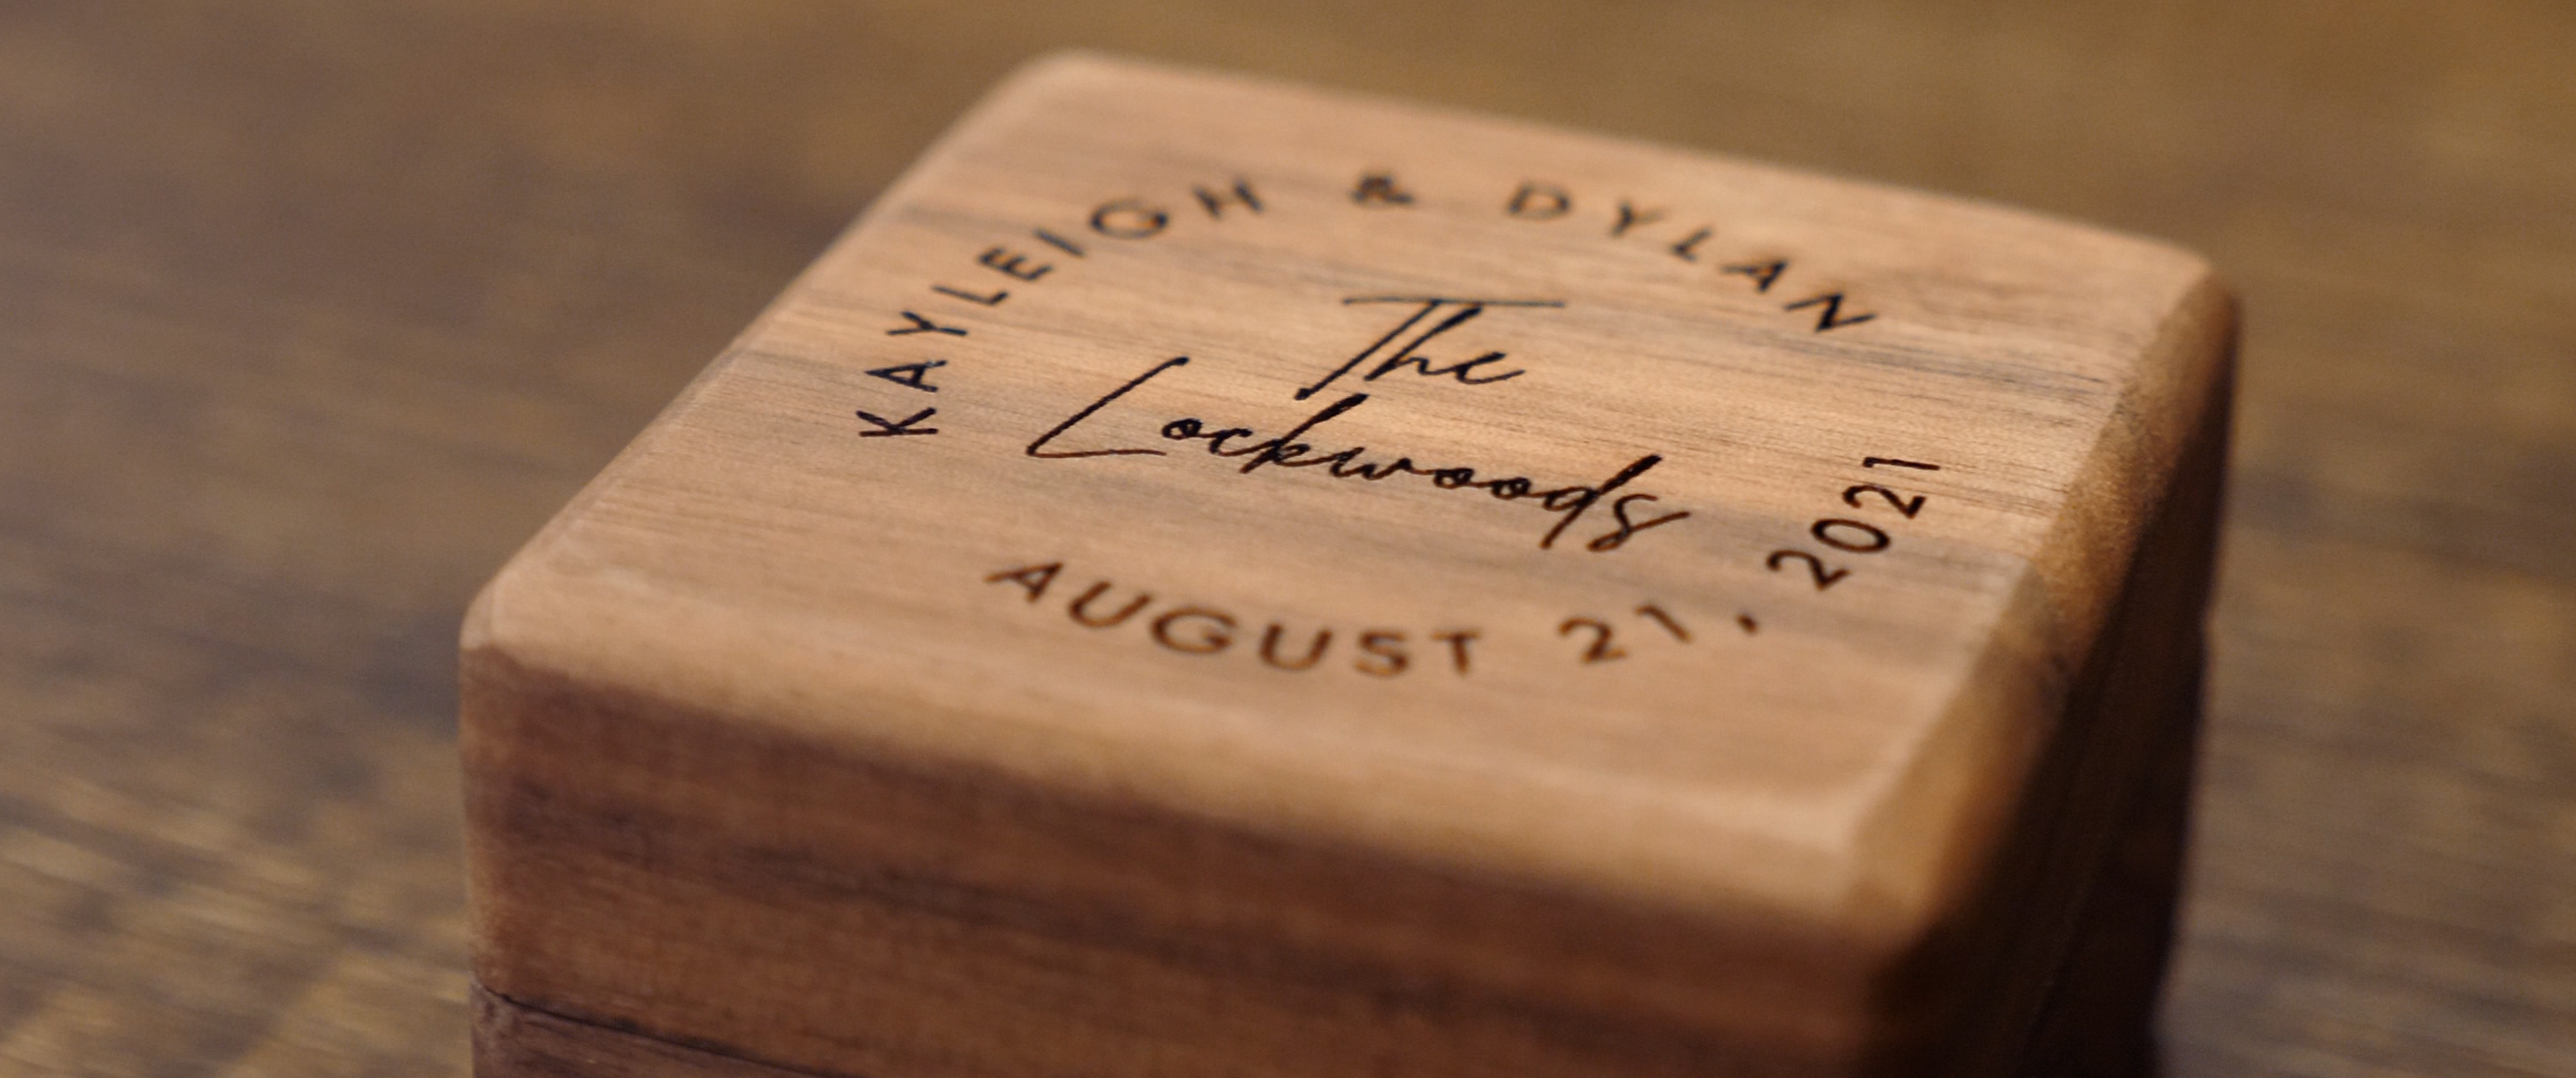 KAYLEIGH & DYLAN
The
Lockwoods
AUGUST 21, 2021